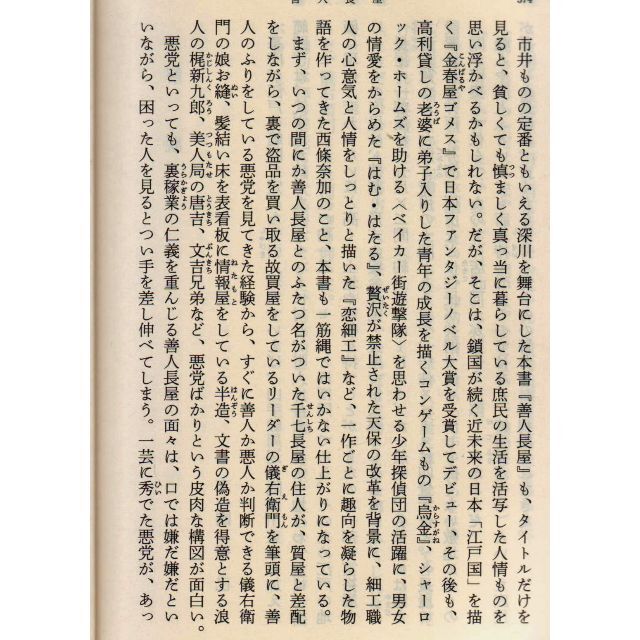 市井ものの定番ともいえる深川を舞台にした本書『善人長屋』も、タイトルだけを
見ると、貧しくても慎ましく真っ当に暮らしている庶民の生活を活写した人情ものを
思い浮かべるかもしれない。だが、そこは、鎖国が続く近未来の日本「江戸国」を描
く『金春屋ゴメス』で日本ファンタジーノベル大賞を受賞してデビュー、その後も、
高利貸しの老婆に弟子入りした青年の成長を描くコンゲームもの『烏金』、シャーロ
ック・ホームズを助ける〈ベイカー街遊撃隊〉を思わせる少年探偵団の活躍に、男女
の情愛をからめた『はむ・はたる』、贅沢が禁止された天保の改革を背景に、細工職
人の心意気と人情をしっとりと描いた『恋細工』など、一作ごとに趣向を凝らした物
語を作ってきた西條奈加のこと、本書も一筋縄ではいかない仕上がりになっている。
まず、いつの間にか善人長屋とのふたつ名がついた千七長屋の住人が、質屋と差配
をしながら、裏で盗品を買い取る故買屋をしているリーダーの儀右衛門を筆頭に、善
人のふりをしている悪党を見てきた経験から、すぐに善人か悪人か判断できる儀右衛
門の娘お縫、髪結い床を表看板に情報屋をしている半造、文書の偽造を得意とする浪
人の梶新九郎、美人局の唐吉、文吉兄弟など、悪党ばかりという皮肉な構図が面白い。
悪党といっても、裏稼業の仁義を重んじる善人長屋の面々は、口では嫌だ嫌だとい
いながら、困った人を見るとつい手を差し伸べてしまう。一芸に秀でた悪党が、あっ